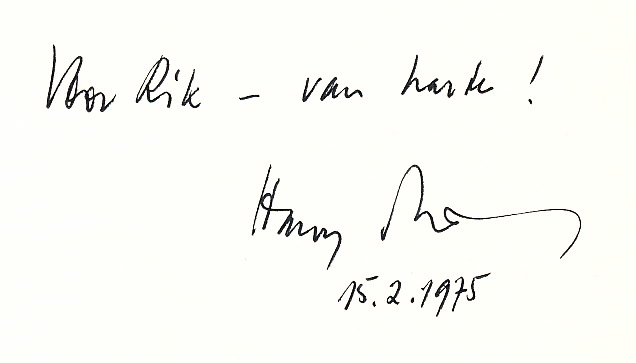 Voor Rik – van harte!
Harry
15.2.1975